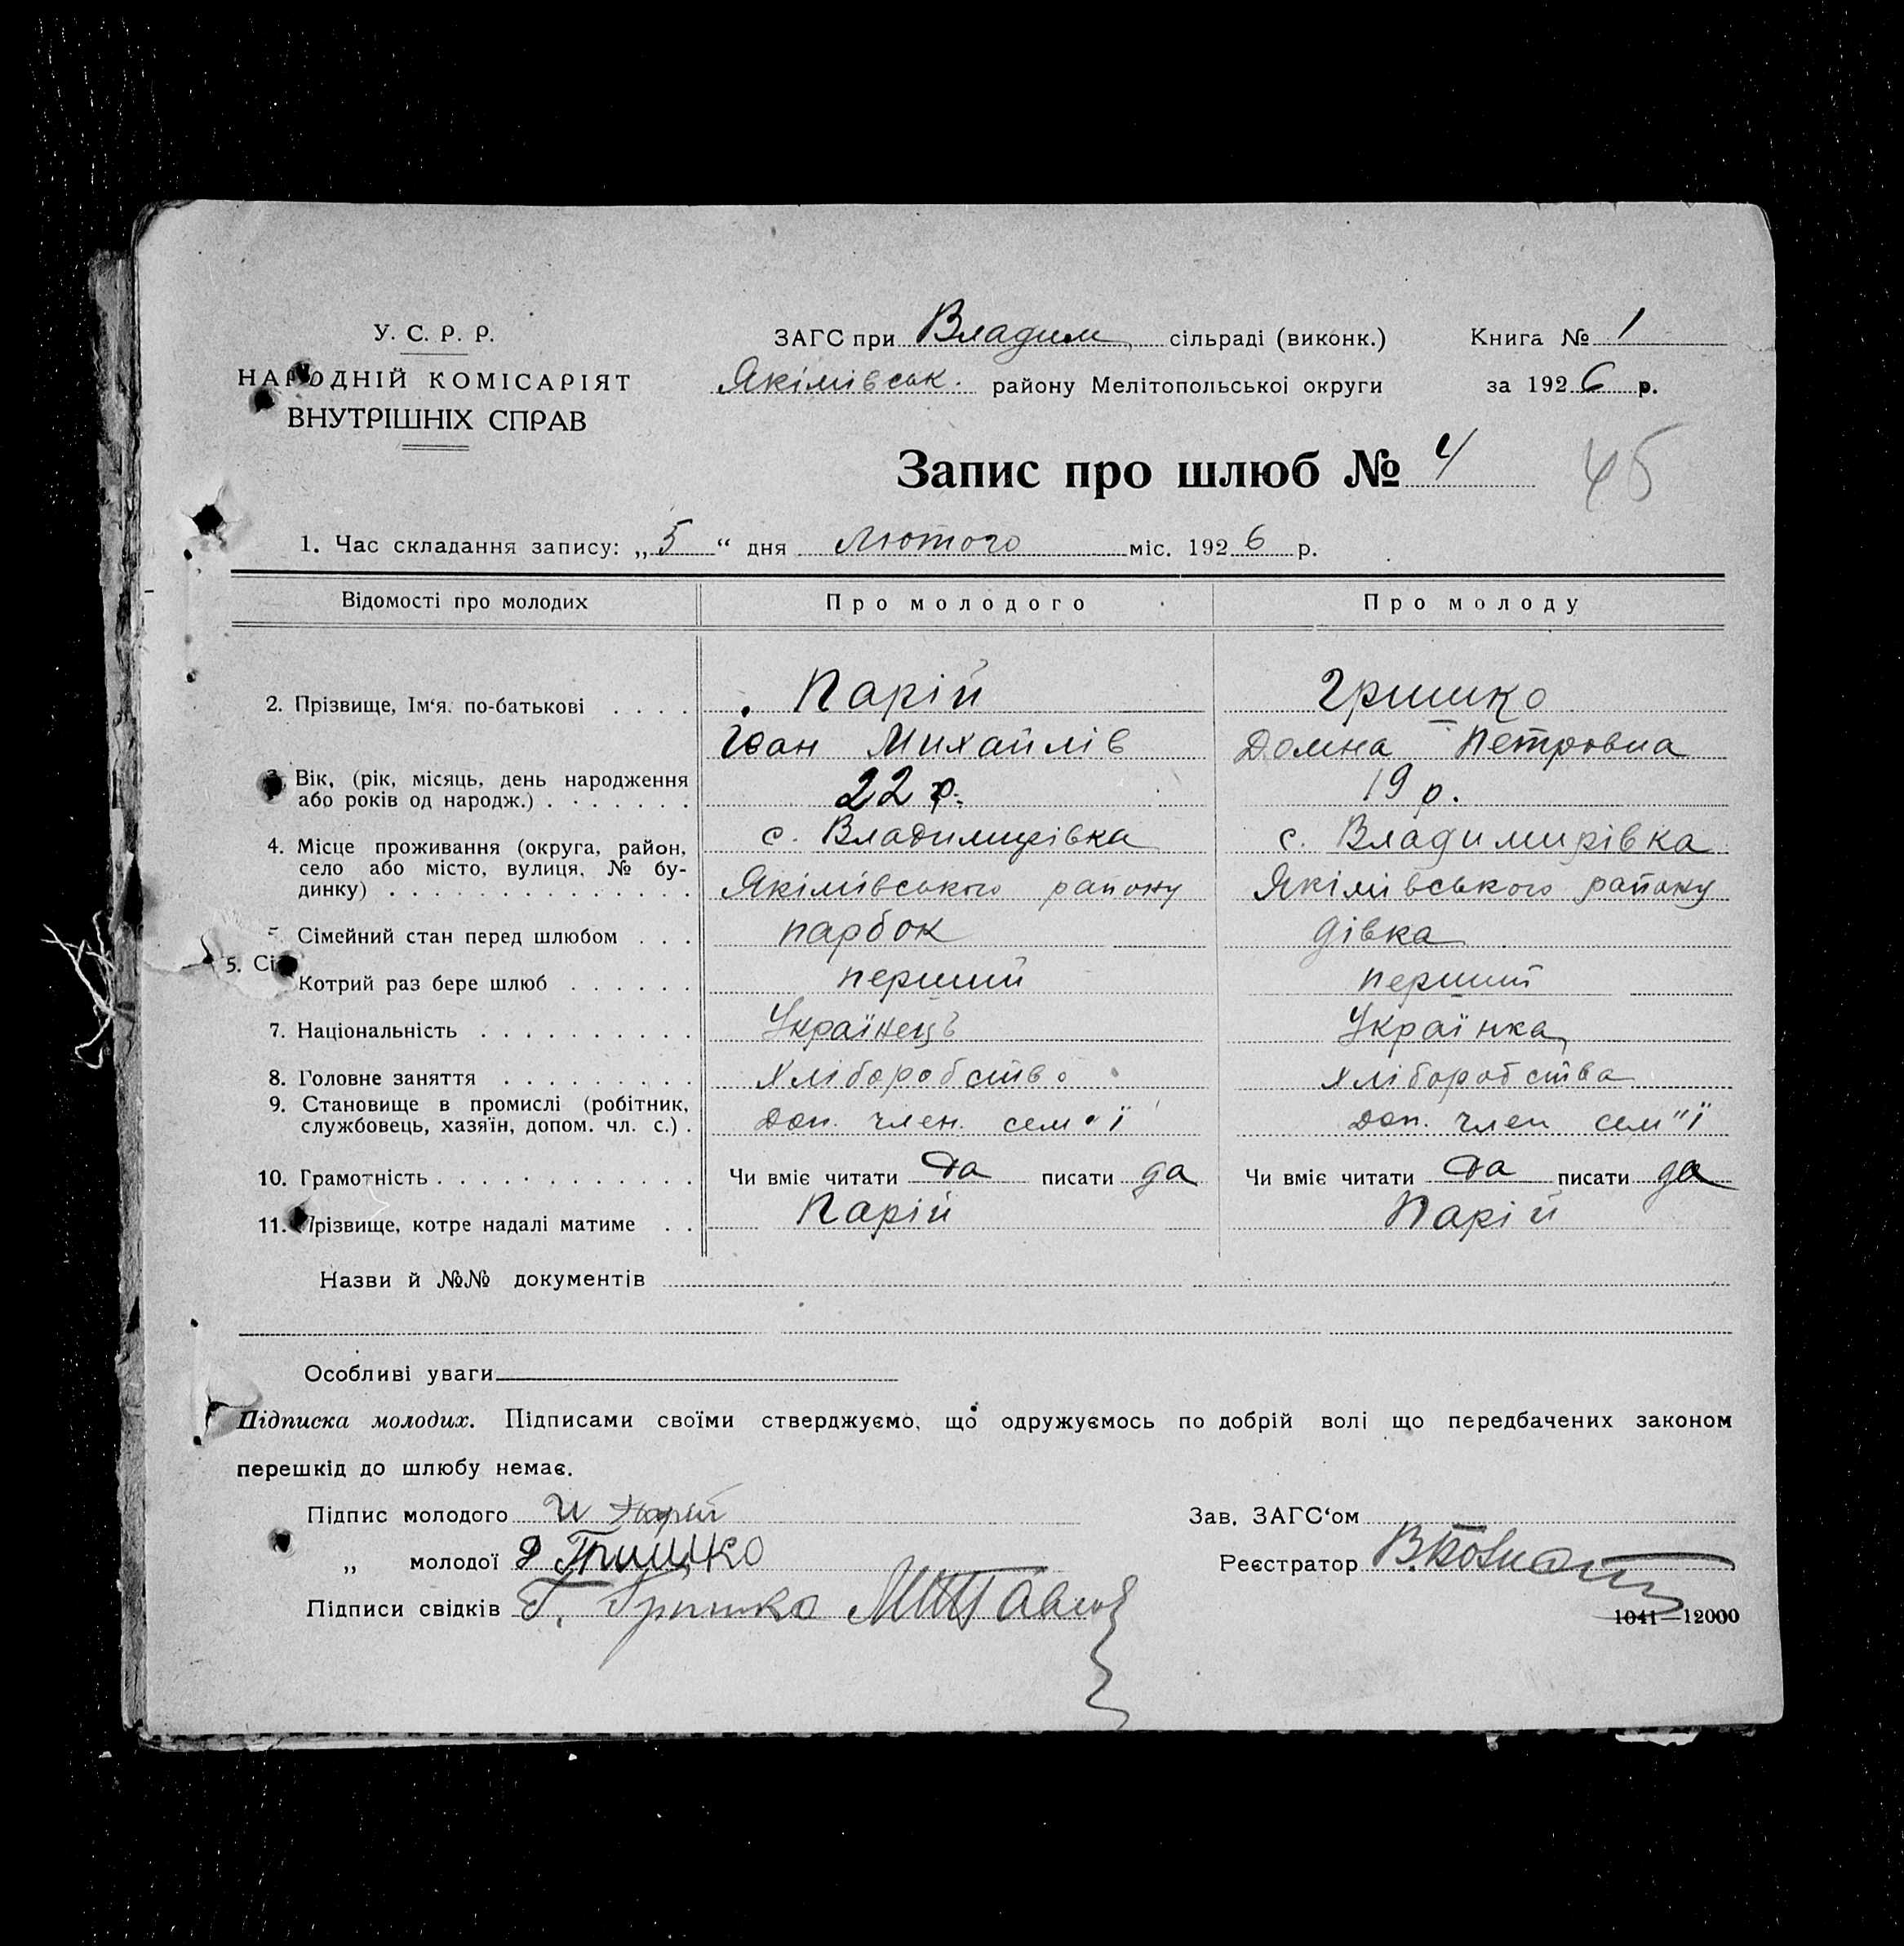 У. С. Р. Р.
НАРОДНІЙ КОМІСАРІЯТ
ВНУТРІШНІХ СПРАВ
ЗАГС при Владим. сільраді (виконк.) Книга № 1
Якімівськ. району Мелітопольськоі округи за 1926 р.
Запис про шлюб № 4 45
1. Час складання запису: „5“ дня Лютого міс. 1926 р.
Відомості про молодих Про молодого Про молоду
2. Прізвище, Ім‘я. по-батькові . . . . Парій Гришко
Іван Михайлів Домна Петровна
3. Вік, (рік, місяць, день народження
або років од народж.) . . . . . . . 22 р. 19 р.
4. Місце проживання (округа, район, с. Владимирівка с. Владимирівка
село або місто, вулиця, № бу-
динку) . . . . . . . . . . . . . . Якімівського району Якімівського району
Сімейний стан перед шлюбом . . . парбок дівка
5. Сі
Котрий раз бере шлюб . . . . . . перший перший
7. Національність . . . . . . . . . . Українець Українка
8. Головне заняття . . . . . . . . . Хліборобство Хліборобства
9. Становище в промислі (робітник,
службовець, хазяїн, допом. чл. с.) . Доп. член. сем"ї Доп. член сем"ї
10. Грамотність . . . . . . . . . . . . Чи вміє читати да писати да Чи вміє читати да писати да
11. Прізвище, котре надалі матиме . . Парій Парій
Назви й №№ документів
Особливі уваги
Підписка молодих. Підписами своїми стверджуємо, що одружуємось по добрій волі що передбачених законом
перешкід до шлюбу немає.
Підпис молодого И Парій Зав. ЗАГС‘ом
„ молодої Д Гришко Реєстратор
Підписи свідків Г. Гришко
1041—12000